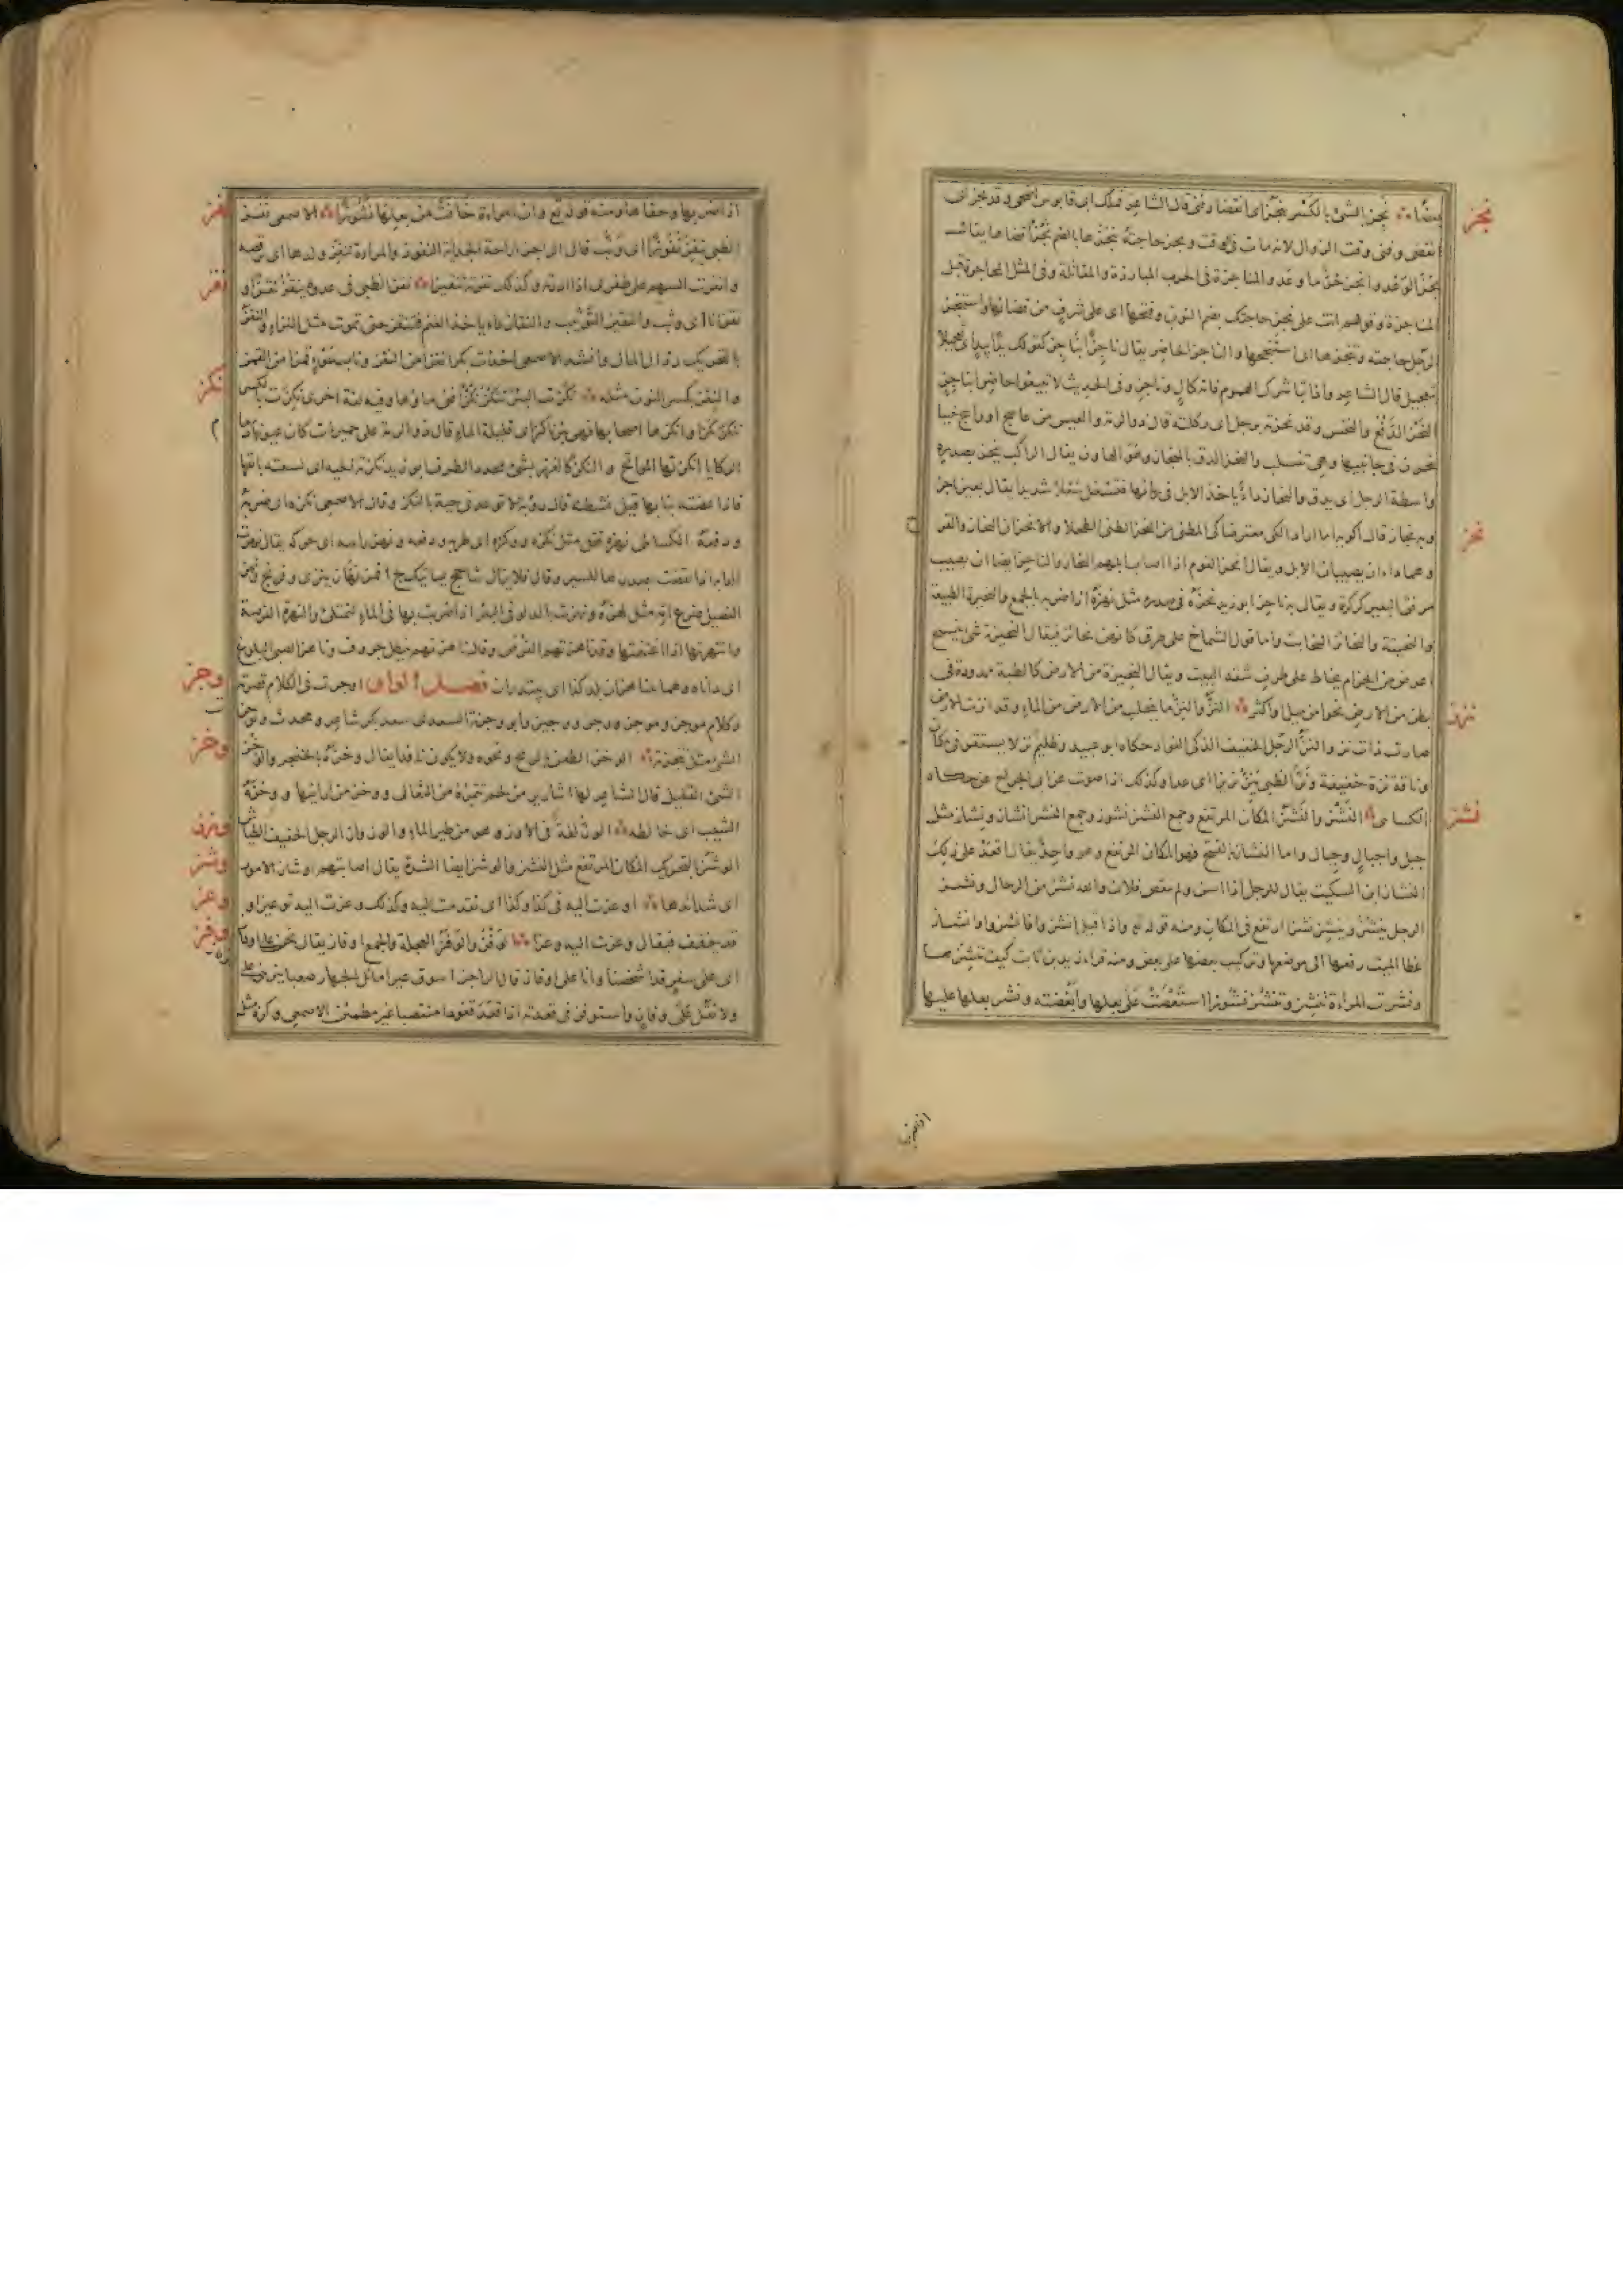 نجز
بعضًا نجِز الشئ بالكسر ينجَز نجزا اى انقضا وفنى قال الشاعر فملك ابى قابوس اضحى وقد نجز اى
انقضى وفنى وقت الزوال لانه مات فى وقت ونجز حاجته ينجُزها بالضم نجزًا قضاها يقال
نجز الوعد وانجز حُرٌّ ما وعد والمناجزة فى الحرب المبارزة والمقاتلة وفى المثل المحاجزة قبل
المناجزة وقولهم انت على نجز حاجتك بضم النون وفتحها اى على شرف من قضائها واستنجز
الرجل حاجته وتنجزها اى استنجحها والناجز الحاضر يقال ناجزًا بناجز كقولك يدًا بيد اى تعجيلا
بتعجيل قال الشاعر واذا تباشرك الهموم فانه كالٍ وناجز وفى الحديث لا تبيعوا حاضرا بناجز
نحز
النحز الدفع والنخس وقد نحزته برجلى اى ركلته قال ذو الرمة والعيس من عاسج او واسج خببا
ينحزن فى جانبيها وهى تنسلب والنحز الدق بالمنحاز وهو الهاون يقال الراكب ينحز بصدره
واسطة الرحل اى يدق والنحاز داء يأخذ الابل فى رئاتها فتسعل سعالا شديدا يقال بعير ناجز
وبه نحاز قال اكويه اما اراد الكى معترضا كى المطنى من النحز الطنى الطحلا والانحزان النحاز والقرح
وهما داءان يصيبان الابل ويقال انحز القوم اذا اصاب ابلهم النحاز والناحز ايضا ان يصيب
مرفق البعير كركرته ويقال به ناحز ابو زيد نحزه فى صدره مثل نهزه اذا ضربه بالجمع والنحيزة الطبيعة
والنحيتة والنحائز النحايت واما قول الشماخ على طرق كانهن نحائز فيقال النحيزة شئ ينسج
اعرض من الحزام يخاط على طرف شقة البيت ويقال النحيزة من الارض كالطبة ممدودة فى
نزز
بطن من الارض نحوا من ميل واكثر النزّ والنِزّ ما يتحلب من الارض من الماء وقد انزت الارض
صارت ذات نز والنز الرجل الخفيف الذكى الفؤاد حكاه ابو عبيد وظليم نز لا يستقر فى مكان
وناقة نزة خفيفة ونزّ الظبى ينز نزيزا اى عدا وكذلك اذا صوت عن ابى الجراح حكاه
نشز
الكسائى النَّشْز والنَّشَز المكان المرتفع وجمع النشز نشوز وجمع النشز انشاز ونشاز مثل
جبل واجبال وجبال واما النشاز بالفتح فهو المكان المرتفع وهو واحد يقال اقعد على ذلك
النشاز ابن السكيت يقال للرجل اذا اسن ولم ينقص فلان والله نشز من الرجال ونشز
الرجل ينشُز وينشِز نشزا ارتفع فى المكان ومنه قوله تع واذا قيل انشزوا فانشزوا وانشاز
عظام الميت رفعها الى موضعها وتركيب بعضها على بعض ومنه قراءة زيد بن ثابت كيف ننشزها
ونشزت المرأة تنشِز وتنشُز نشوزا استعصت على بعلها وابغضته ونشز بعلها عليها
اذا ضربها وجفاها ومنه قوله تع وان امرأة خافت من بعلها نشوزا الاصمعى نفز
نفز
الظبى ينفز نفوزا اى وثب قال الراجز اراحة الجداية النفوز والمرأة تنفّز ولدها اى ترقصه
وانفزت السهم على ظفرى اذا ادرته وكذلك نفزته تنفيزا نقز الظبى فى عدوه ينقز نقزا و
نقز
نقزانا اى وثب والتنقيز التوثيب والنقاز داء يأخذ الغنم فتنقز حتى تموت مثل النزاء والنقز
بالتحريك رذال المال وانشد الاصمعى اخذت بكرا نقزا من النقز وناب سوء قمزا من القمز
نكز
والنقز بكسر النون مثله نكزت البئر تنكز نكزا فنى ماؤها وفيه لغة اخرى نكزت بالكسر
تنكز نكزا وانكزها اصحابها فهى بئر ناكز اى قليلة الماء قال ذو الرمة على حميريات كان عيونها ذمام
الركايا انكزتها المواتح والنكز كالغرز بشئ محدد الطرف ابو زيد نكزته الحية اى لسعته بانفها
فاذا عضته بنابها قيل نشطته قال رؤبة لا توعدنى حية بالنكز وقال الاصمعى نكزه اى ضربه
ودفعه الكسائى نهزه مثل نكزه ووكزه اى ضربه ودفعه ونهز رأسه اى حركه يقال نهزت
الدابة اذا نهضت بصدرها للسير وقال فلا يزال شاحج يأتيك بج اقمر نهاز ينزى وفرتج ونهز
الفصيل ضرع امه مثل لهزه ونهزت بالدلو فى البئر اذا ضربت بها فى الماء لتمتلئ والنهزة الفرصة
وانتهزتها اذا اغتنمتها وقد ناهزتهم الفرص وناهز الصبى البلوغ
وجز
اى داناه وهما يتناهزان امارة بلد كذا اى يبتدران فصل الواو اوجزت فى الكلام قصرته
وكلام موجز وموجَز ووجز ووجيز وابو وجزة السعدى سعد بكر شاعر ومحدث وتوجزت
وخز
الشئ مثل تنجزته الوخز الطعن بالرمح ونحوه ولا يكون نافذا يقال وخزه بالخنجر والوخز
الشئ القليل قال الشاعر لها اشارير من لحم تتمره من الثعالى ووخز من ارانيها ووخزه
وزز
الشيب اى خالطه الوز لغة فى الاوز وهو من طير الماء والوزواز الرجل الخفيف الطياش
وشز
الوشز بالتحريك المكان المرتفع مثل النشز والوشز ايضا الشدة يقال اصابتهم اوشاز الامور
وعز
اى شدائدها اوعزت اليه فى كذا وكذا اى تقدمت اليه وكذلك وعزت اليه توعيزا و
وفز
قد يخفف فيقال وعزت اليه وعزا الوفز والوفز العجلة والجمع اوفاز يقال نحن على اوفاز
اى على سفر قد اشخصنا وانا على اوفاز قال الراجز اسوق عيرا مائل الجهاز صعبا ينزينى على
ولا تقل على وفاز واستوفز فى قعدته اذا قعد قعودا منتصبا غير مطمئن الاصمعى وكزه مثل